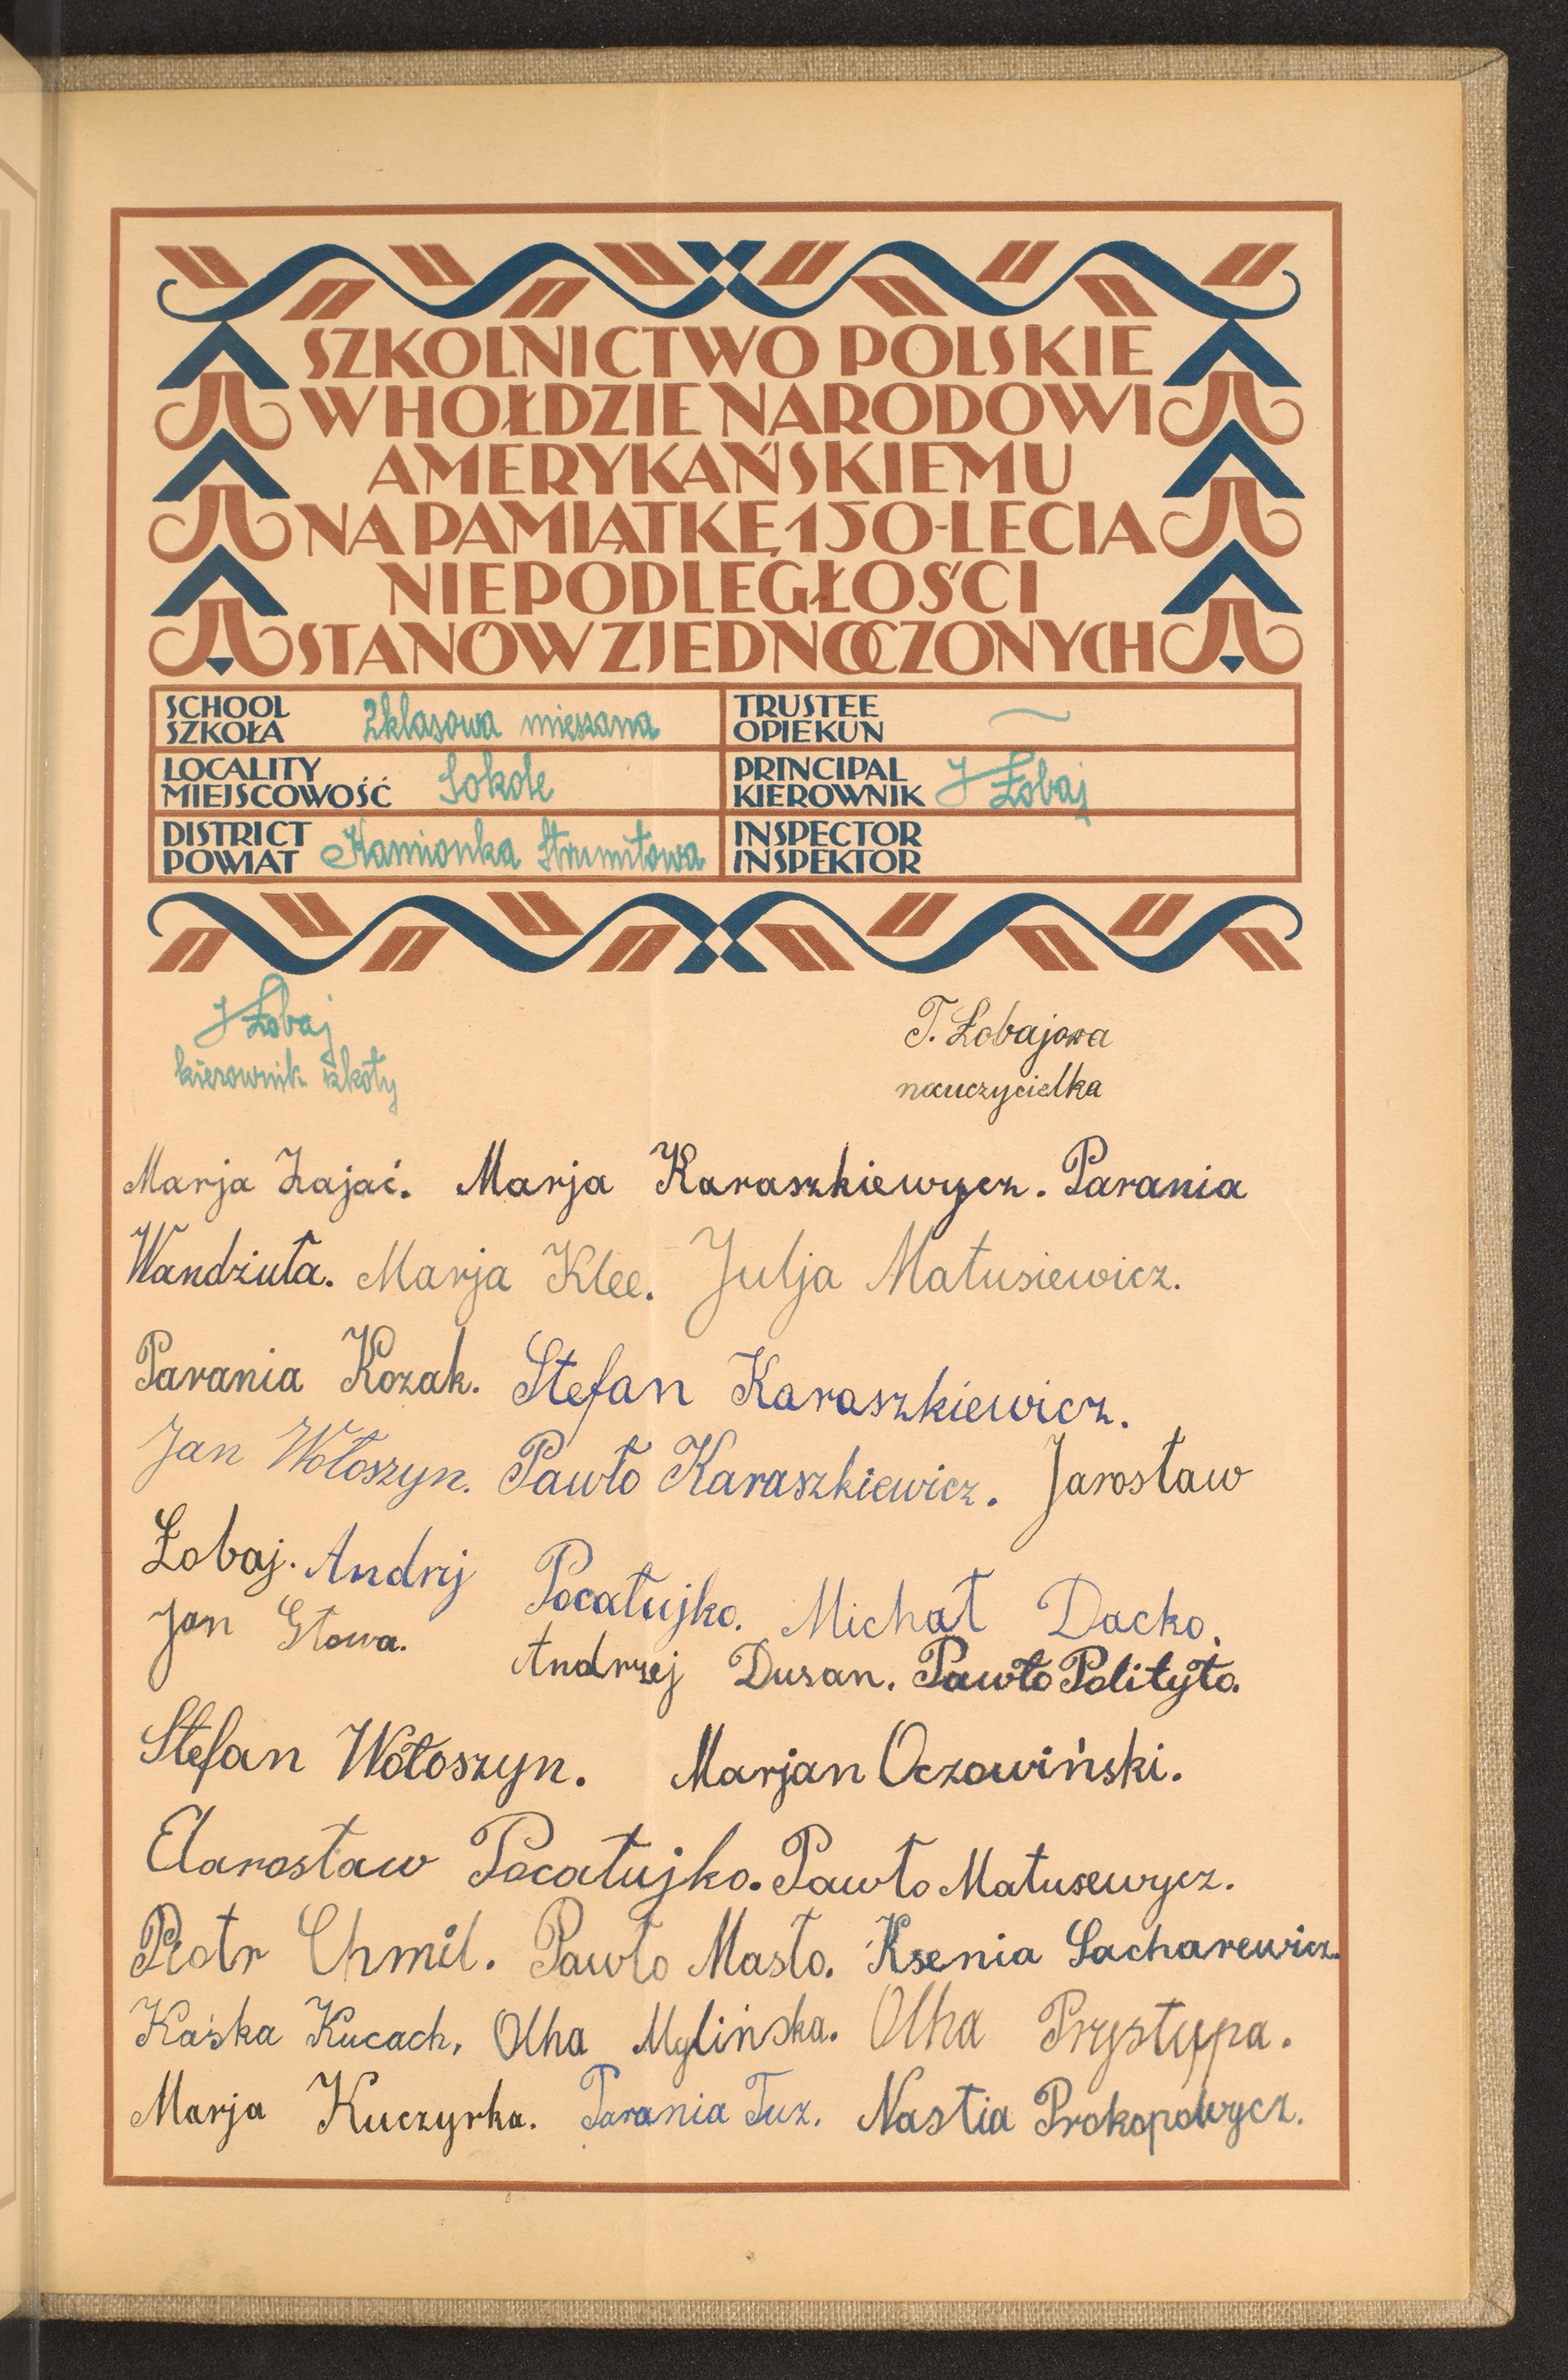 SZKOLNICTWO POLSKIE
W HOŁDZIE NARODOWI
AMERYKAŃSKIEMU
NA PAMIĄTKĘ 150-LECIA
NIEPODLEGŁOŚCI
STANÓW ZJEDNOCZONYCH
SCHOOL
SZKOŁA 2klasowa mieszana
TRUSTEE
OPIEKUN
LOCALITY
MIEJSCOWOŚĆ Sokole
PRINCIPAL
KIEROWNIK J Łobaj
DISTRICT
POWIAT Kamionka Strumiłowa
INSPECTOR
INSPEKTOR
J Łobaj
kierownik szkoły
T. Łobajowa
nauczycielka
Marja Zajać. Marja Karaszkiewycz. Parania
Wandziuła. Marja Klee. Julja Matusiewicz.
Parania Kozak. Stefan Karaszkiewicz.
Jan Wołoszyn. Pawło Karaszkiewicz. Jarosław
Łobaj. Andrij Pocałujko. Michał Dacko.
Jan Głowa. Andrzej Dusan. Pawło Polityło.
Stefan Wołoszyn. Marjan Oczowiński.
Jarosław Pocałujko. Pawło Matusewycz.
Piotr Chmil. Pawło Masło. Ksenia Sacharewicz.
Kaśka Kucach. Olha Mylińska. Olha Prystupa.
Marja Kuczyrka. Parania Tuz. Nastia Prokopowycz.